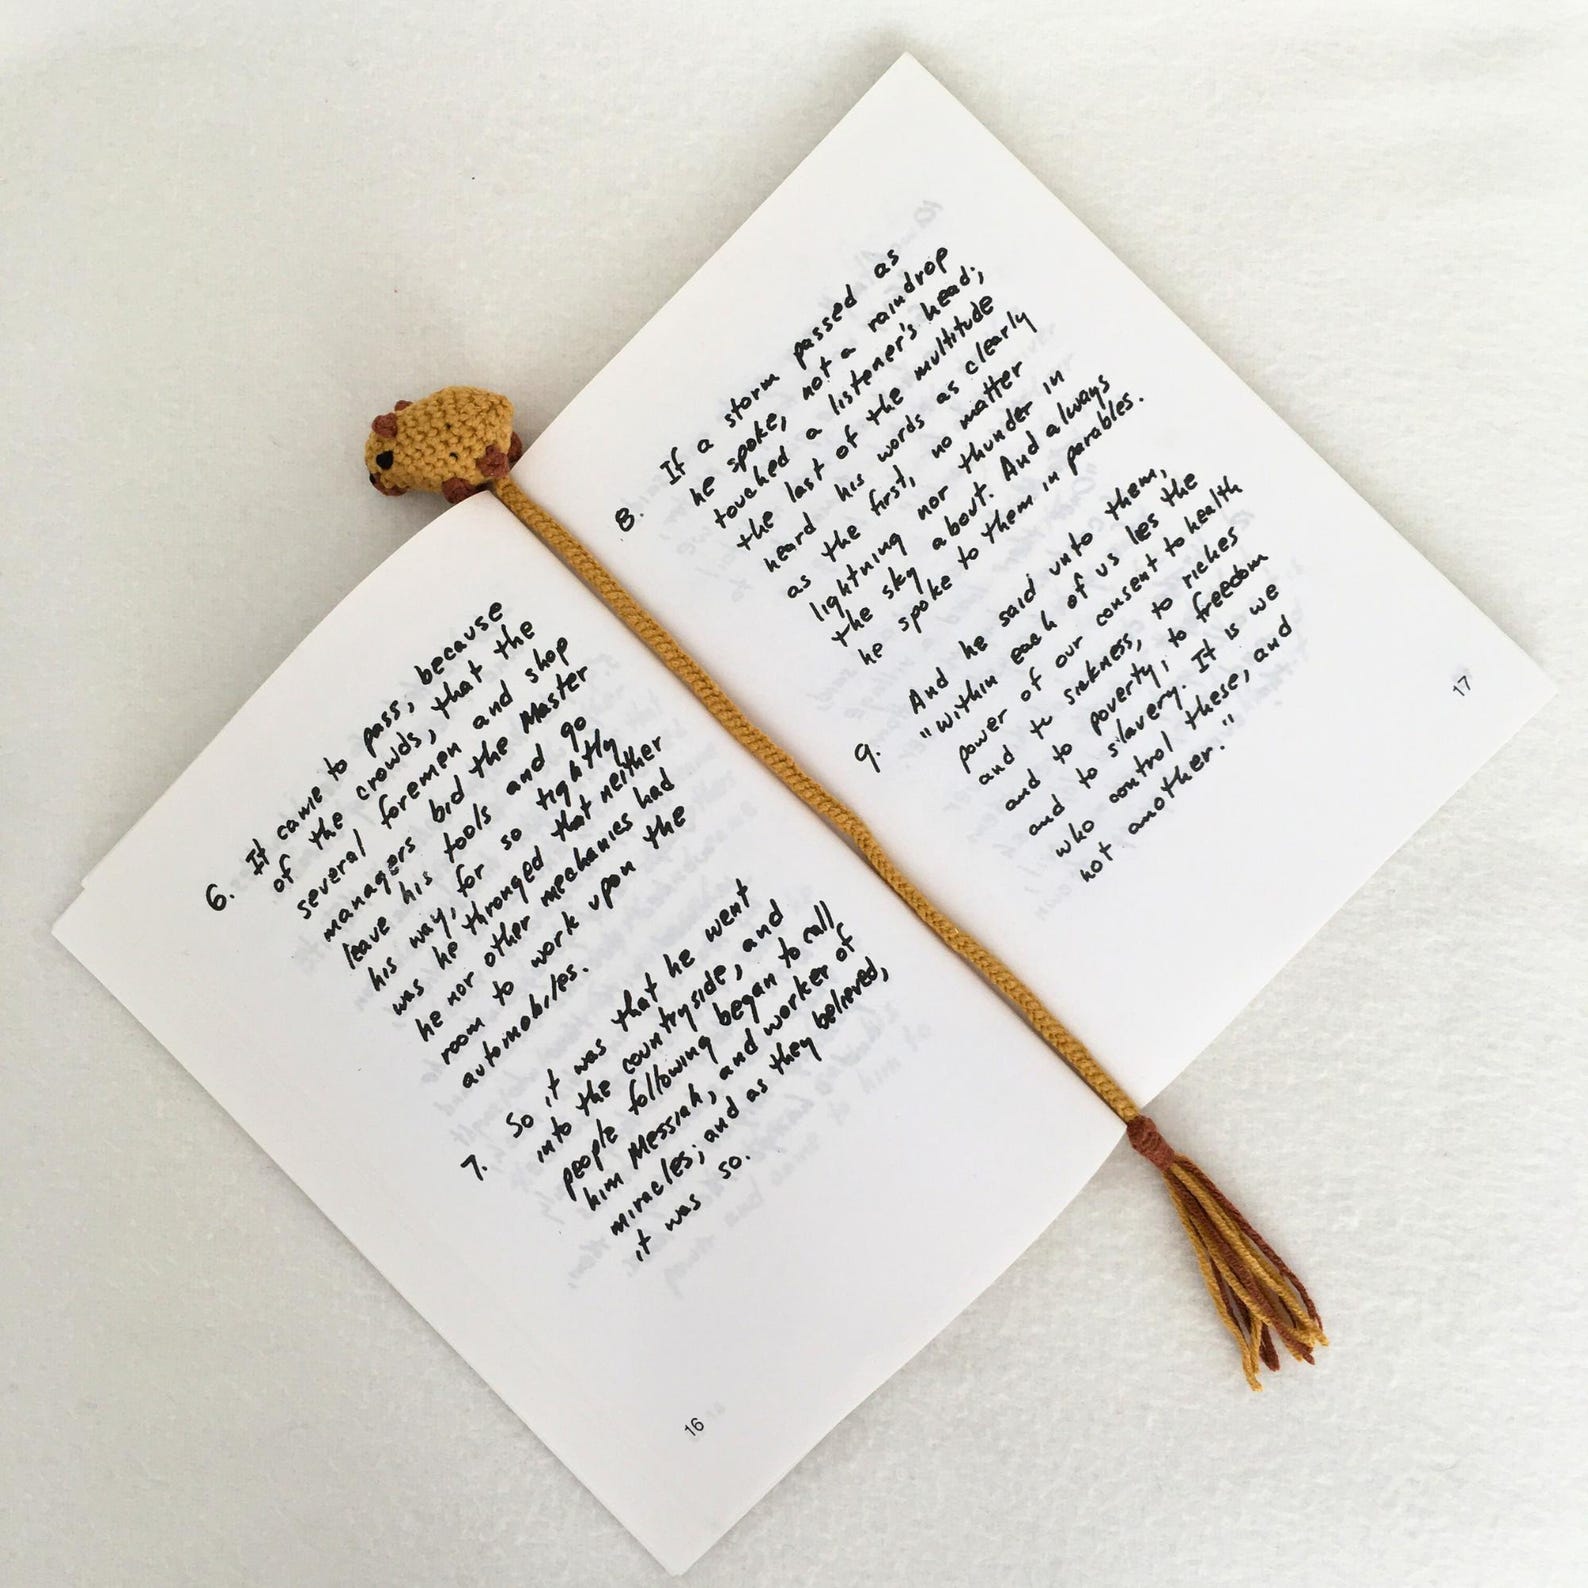 6. It came to pass, because
of the crowds, that the
several foremen and shop
managers bid the Master
leave his tools and go
his way, for so tightly
was he thronged that neither
he nor other mechanics had
room to work upon the
automobiles.
7. So it was that he went
into the countryside, and
people following began to call
him Messiah, and worker of
miracles; and as they believed,
it was so.
16
8. If a storm passed as
he spoke, not a raindrop
touched a listener's head;
the last of the multitude
heard his words as clearly
as the first, no matter
lightning nor thunder in
the sky about. And always
he spoke to them in parables.
9. And he said unto them,
"Within each of us lies the
power of our consent to health
and to sickness, to riches
and to poverty, to freedom
and to slavery. It is we
who control these, and
not another."
17